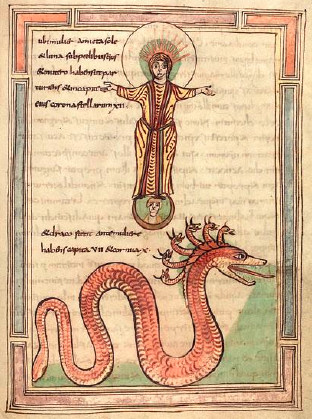 ubi mulier amicta sole
& luna sub pedibus eius
& in utero habens & par
turiens & in capite
eius corona stellarum xii
& draco stetit ante muliere
habens capita VII & cornua x